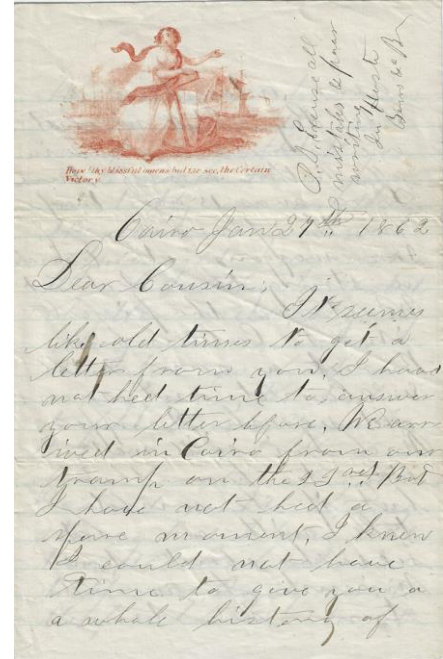 Hope! thy blissful omens bid us see, the Certain
Victory.
P.S. Excuse all
mistakes & poor
writing
In Haste
Cairo Jan 27th 1862
Dear Cousin,
It seems
like old times to get a
letter from you. I have
not hed time to answer
your letter before. We arr
ived in Cairo from our
tramp on the But
I have not hed a
spare moment. I knew
I could not have
time to give you a
a whole history of